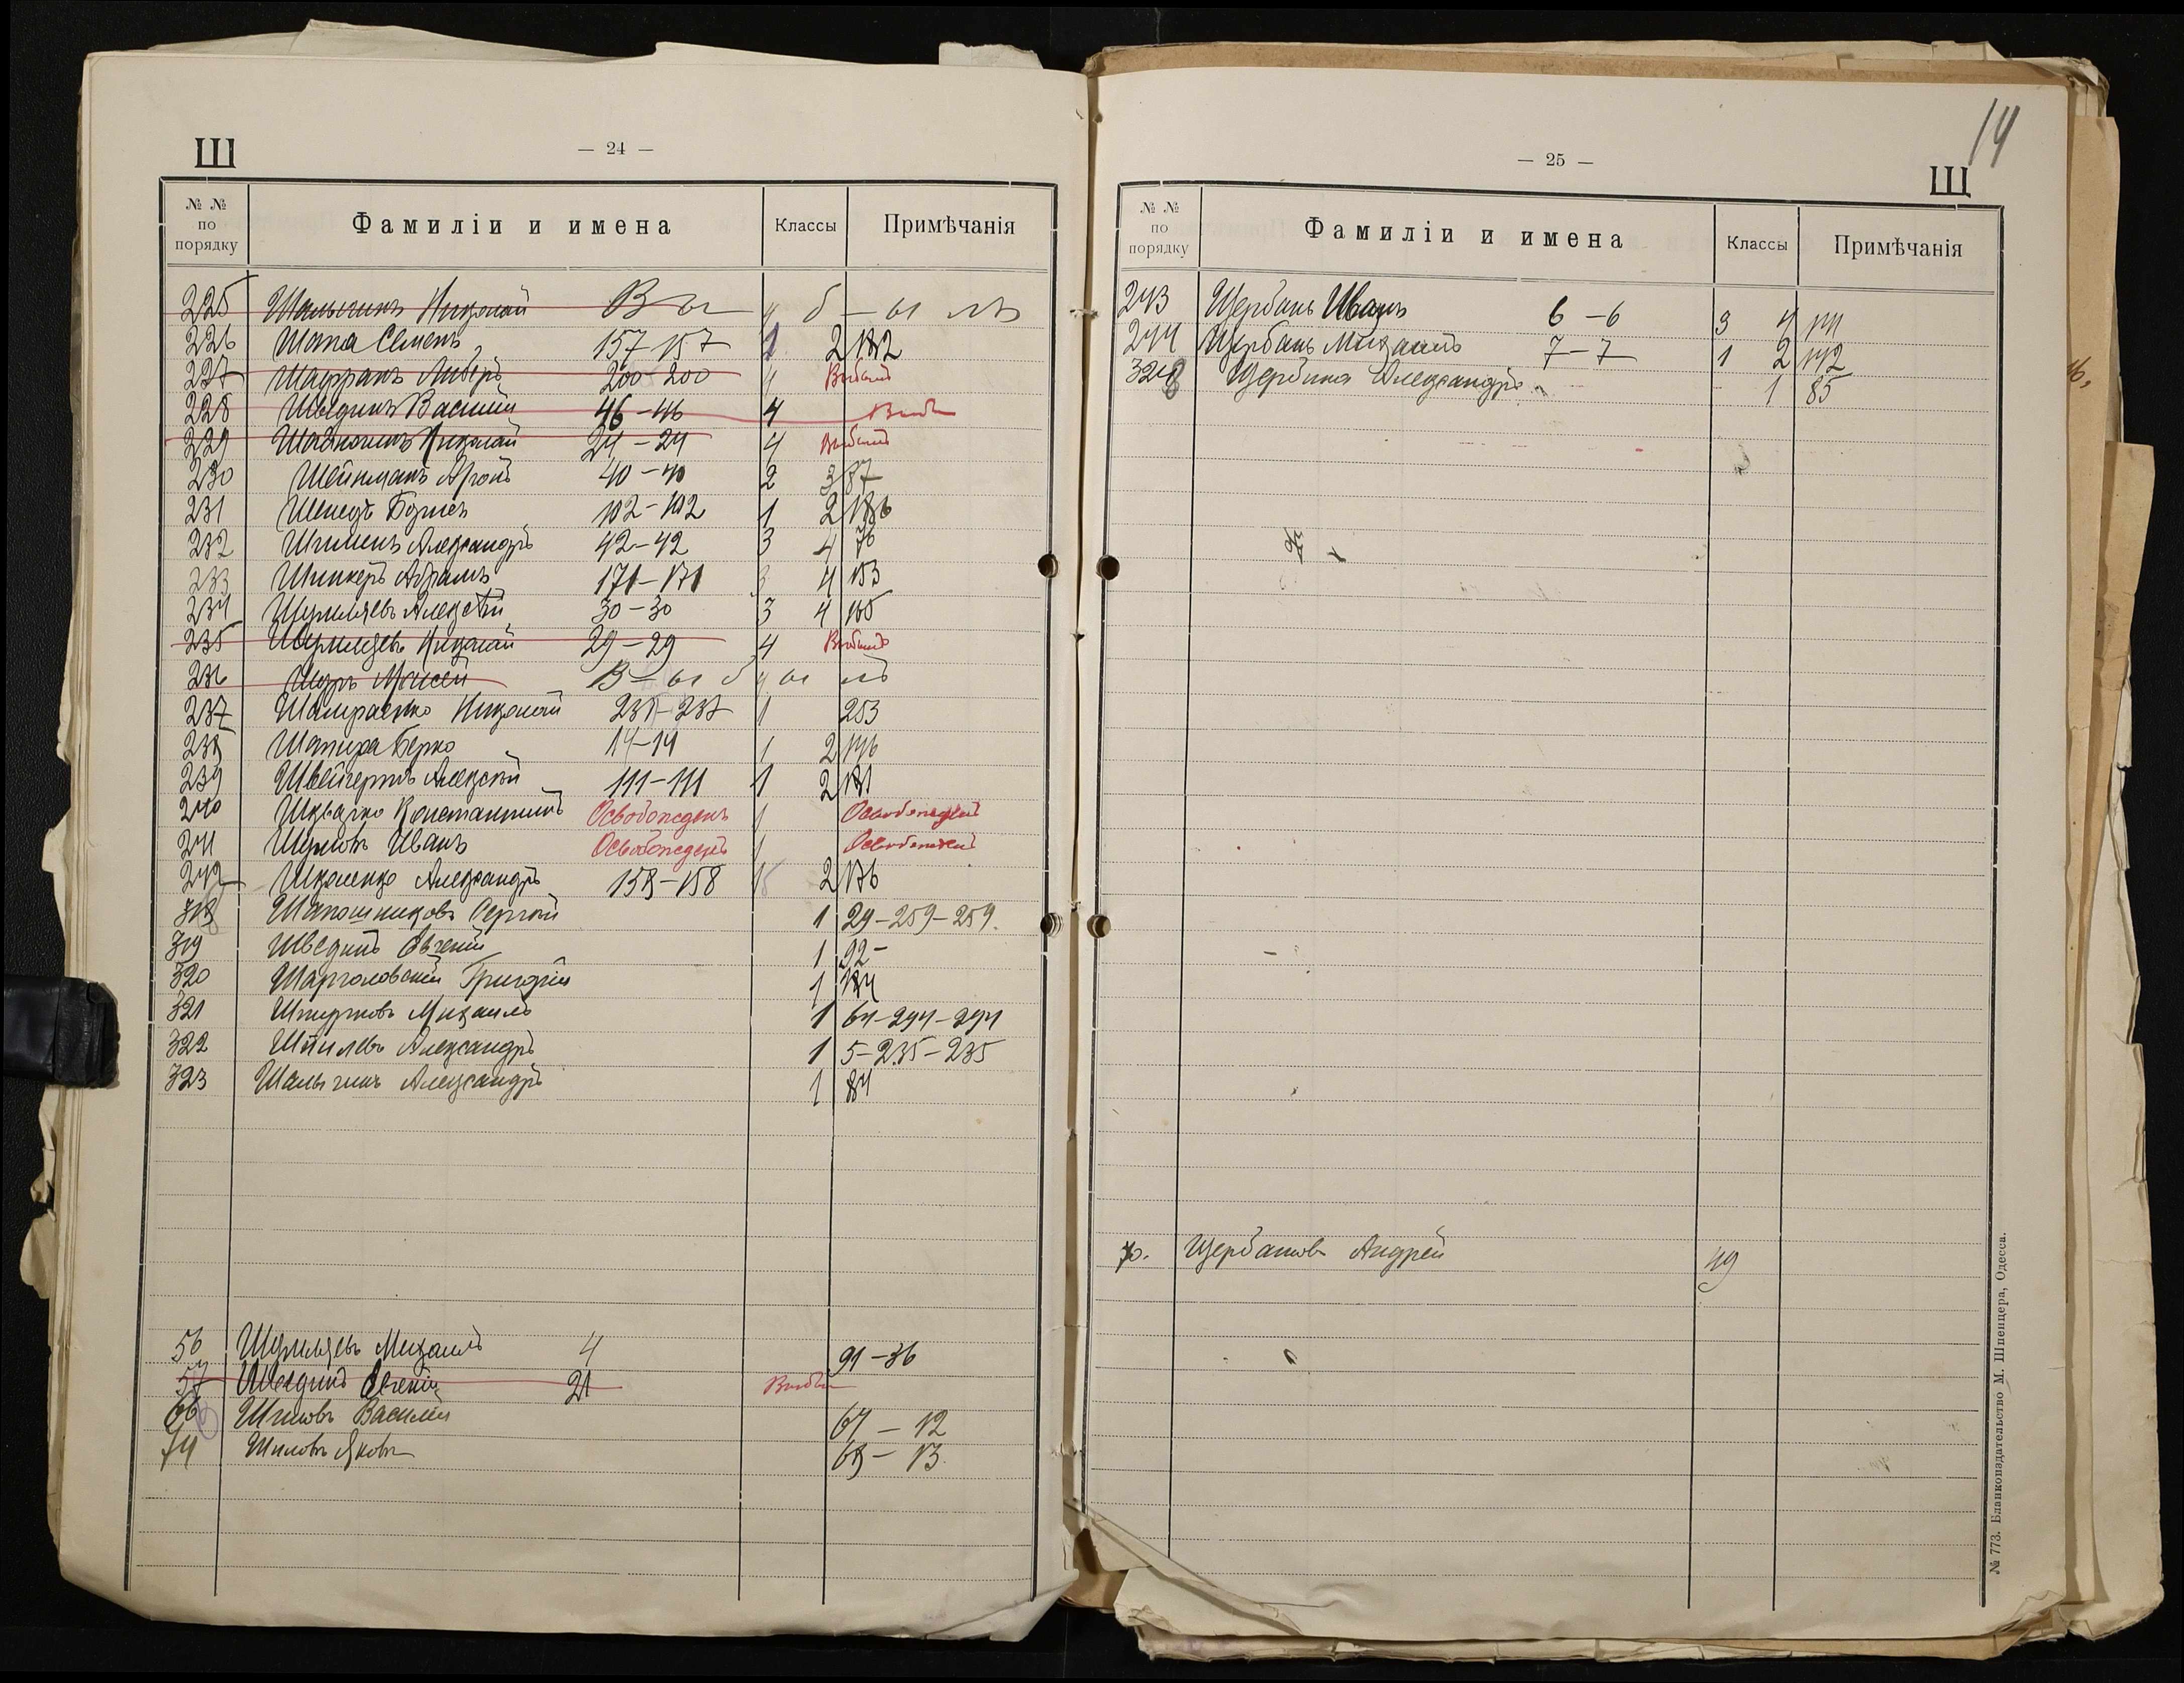 Ш
— 24 —
№ № по порядку Фамиліи и имена Классы Примѣчанія
225 Шалыгинъ Николай В ы б — ы лъ
226 Шапа Семенъ 157-157 2 182
227 Шафранъ 200-200 4 Выбылъ
228 Шведунъ Василій 46-46 4 Выбы
229 Николай 24-24 4 Выбылъ
230 Шейнманъ Аронъ 40-40 2 3 87
231 Борисъ 102-102 1 2 186
232 Александръ 42-42 3 4 76
233 Шпикеръ Абрамъ 171-171 3 4 153
234 Шумляевъ Алексѣй 30-30 3 4 165
235 Шумляевъ Николай 29-29 4 Выбылъ
236 Шуръ Моисей В — ы б ы лъ
237 Николай 1 253
238 Шапира Берко 14-14 1 2 146
239 Алексѣй 111-111 1 2 181
240 Шкварко Константинъ Освобожденъ 1 Освобожденъ
241 Шумовъ Иванъ Освобожденъ 1 Освобожденъ
242 Школенко Александръ 158-158 2 176
318 Шапошниковъ Сергѣй 1 29-259-259.
319 Шведунъ Евгеній 1 92-
320 Шарголовскій Григорій 1 184
321 Михаилъ 1 64-294-294
322 Шпилевъ Александръ 1 5-235-235
323 Шалыгинъ Александръ 1 84
56 Шумляевъ Михаилъ 4 91-36
57 Шведунъ Евгеній 21 Выбы
66 Василій 67 — 12
74 Шиловъ Яковъ 68 — 13
14
— 25 —
Щ
№ № по порядку Фамиліи и имена Классы Примѣчанія
243 Щербань Иванъ 6-6 3 4 141
244 Щербань Михаилъ 7-7 1 2 142
328 Щербина Александръ 1 85
70. Щербаковъ Андрей 49
№ 773. Бланкоиздательство М. Шпенцера, Одесса.
16.